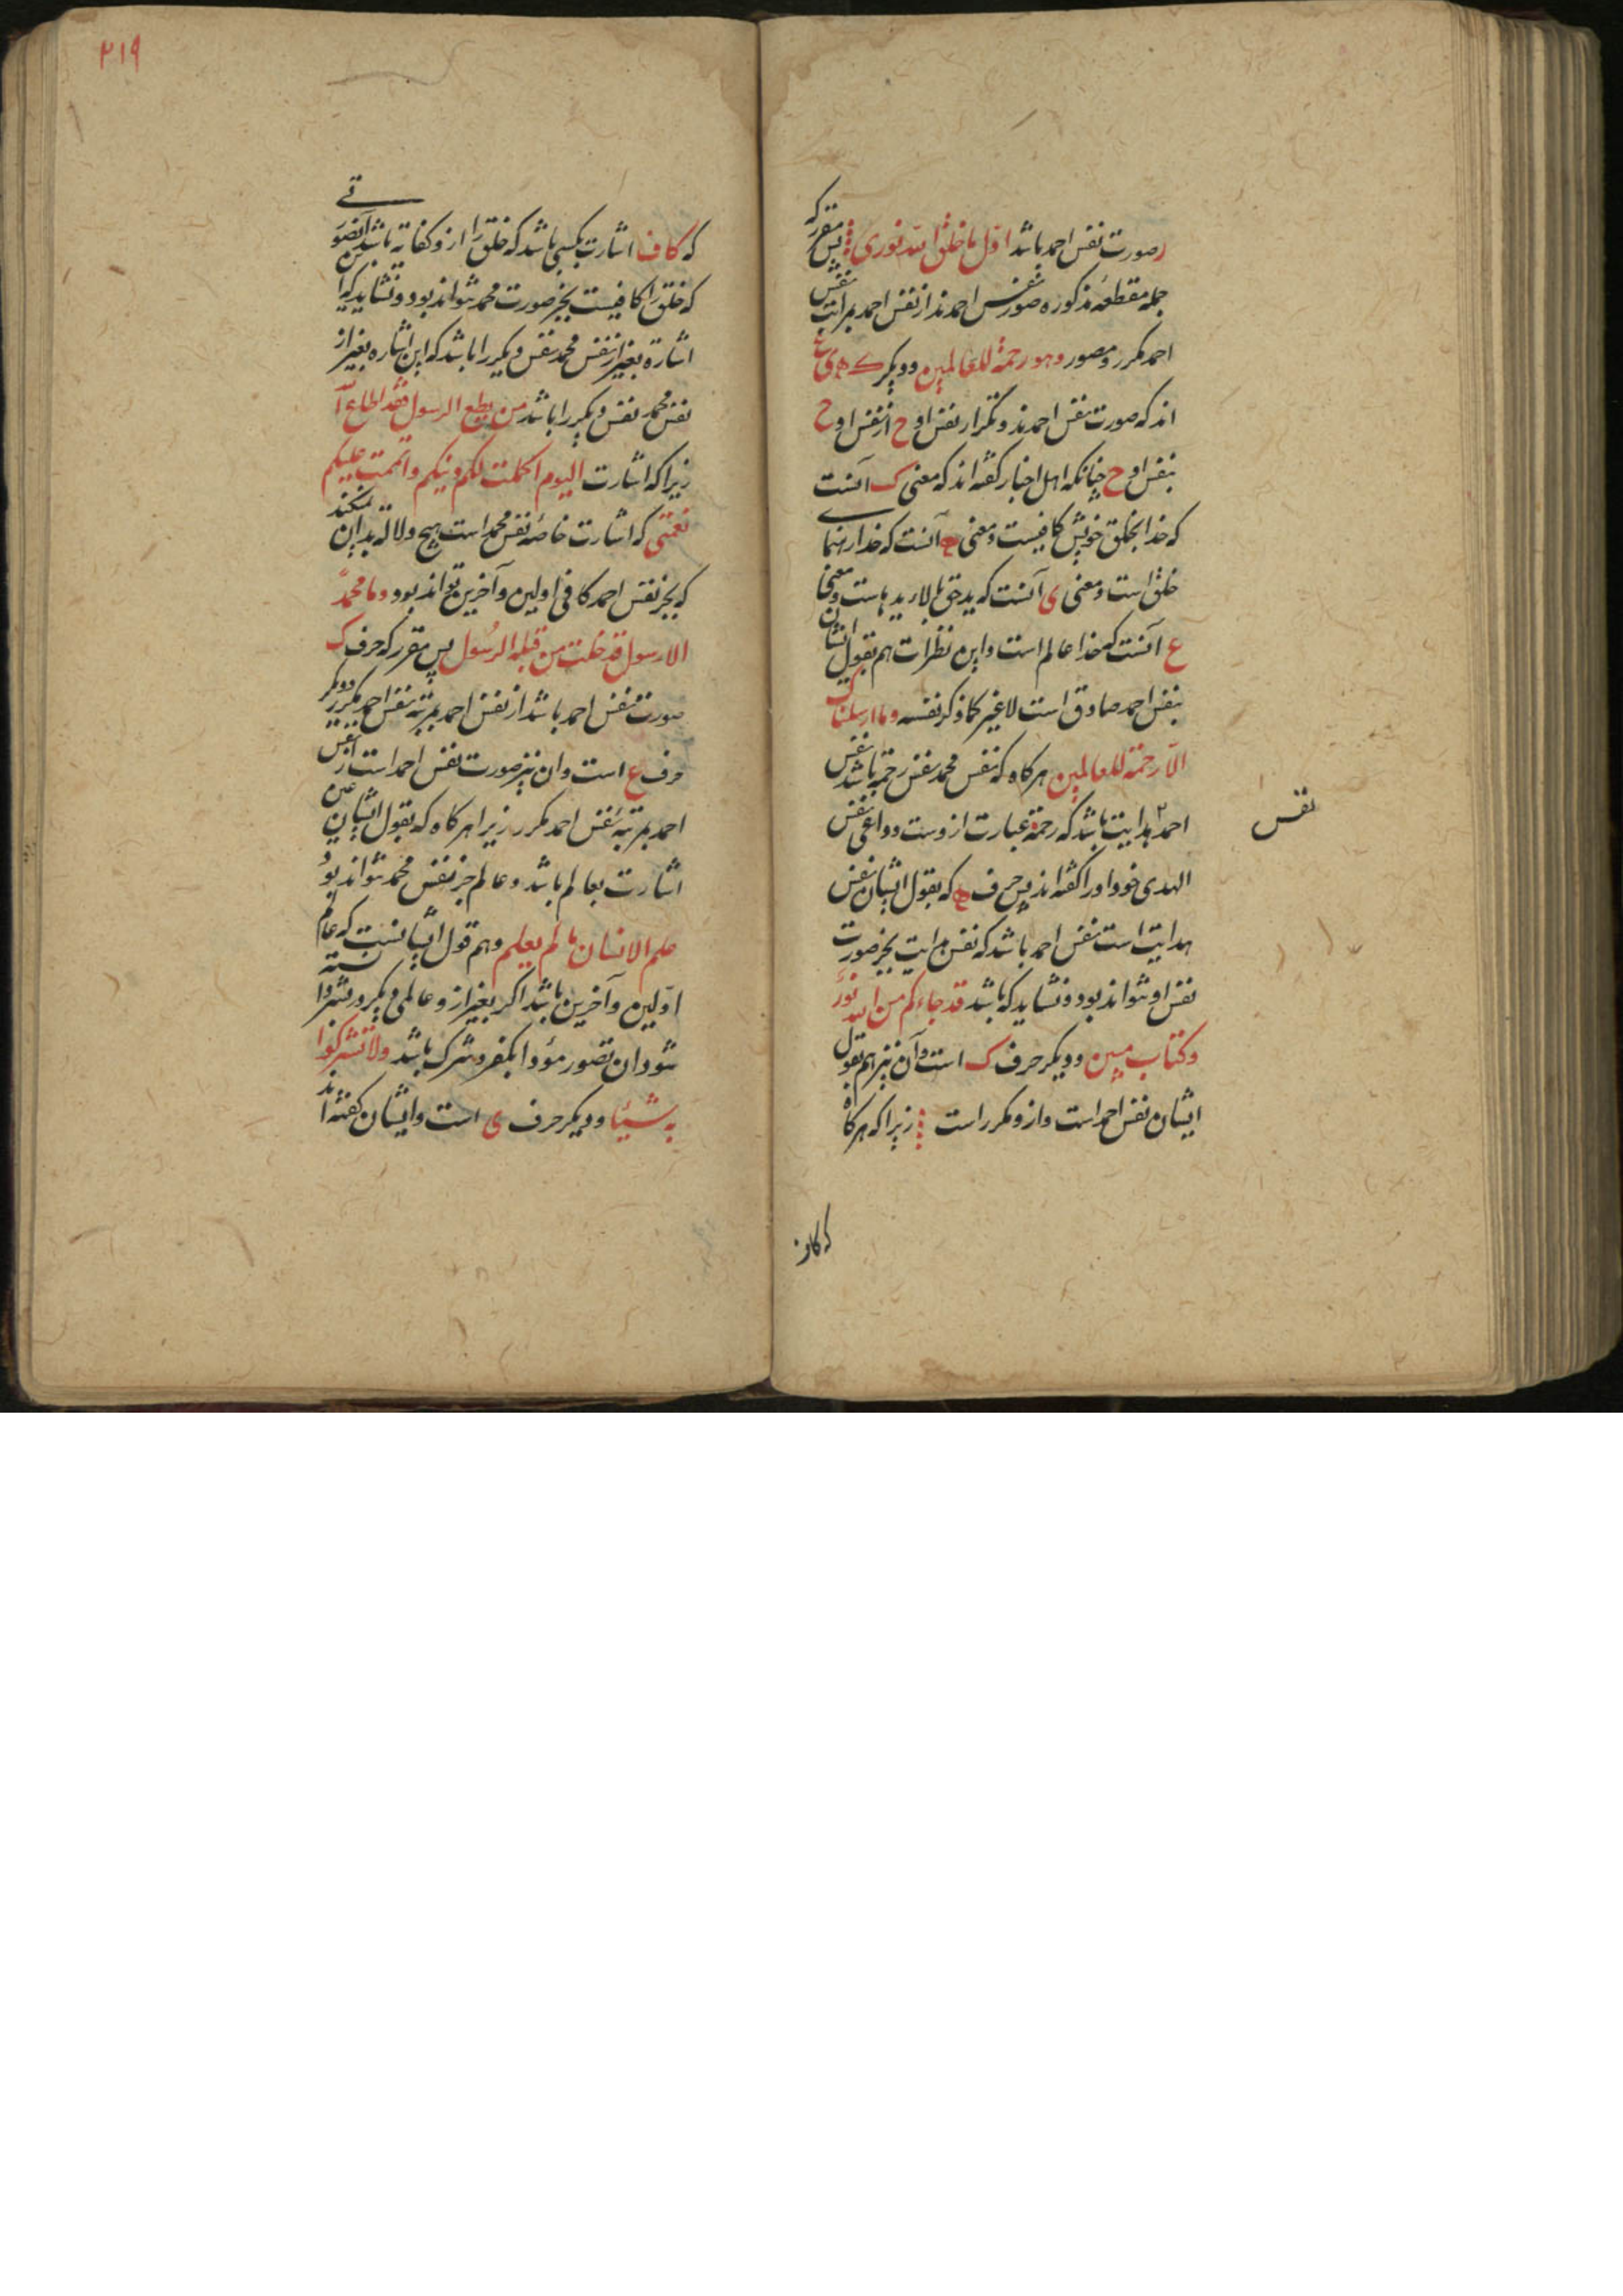 صورت نفس احمد باشد اول ما خلق الله نوری پس مقرر که
جمله مقطعهٔ مذکوره صور نفس احمدند از نفس احمد بمراتب نفس
احمد مکرر و مصور وهو رحمة للعالمین و دیکر ک ه ی ع
اند که صورت نفس احمدند و تکرار نفس او ح از نفس او ح
بنفس او ح چنانکه اهل اخبار کفته اند که معنی ک آنست
که خدا بخلق خویش کافیست و معنی ه آنست که خدا رهنمای
خلق است و معنی ی آنست که ید حق بالا ید هاست و معنی
ع آنست که خدا عالم است و این نظرات هم بقول ایشان
بنفس احمد صادق است لا غیر کما ذکر نفسه وما ارسلناک
الا رحمة للعالمین هر کاه که نفس محمد نفس رحمة باشد نفس
نفس
احمد هدایت باشد که رحمة عبارت ازوست و داعی نفس
الهدی خود او را کفته اند پس حرف ه که بقول ایشان نفس
هدایت است نفس احمد باشد که نفس هدایت بجز صورت
نفس او نتواند بود و نشاید که باشد قد جاءکم من الله نور
وکتاب مبین و دیکر حرف ک است و آن نیز هم بقول
ایشان نفس احمد است و ازو مکرر است زیرا که هر کاه
که کاف
۲۱۹
که کاف اشارت بکسی باشد که خلق را ازو کفایة باشد آن صورتی
که خلق را کافیست بجز صورت محمد نتواند بود و نشاید که
اشارة بغیر از نفس محمد نفس دیکر را باشد که این اشاره بغیر از
نفس محمد نفس دیکر را باشد من یطع الرسول فقد اطاع الله
زیرا که اشارت الیوم اکملت لکم دینکم واتممت علیکم
نعمتی که اشارت خاصهٔ نفس محمد است هیچ دلالة بدان نمکند
که بجز نفس احمد کافی اولین و آخرین تواند بود وما محمد
الا رسول قد خلت من قبله الرسول پس مقرر که حرف ک
صورت نفس احمد باشد از نفس احمد بمرتبه نفس احمد مکرر و دیکر
حرف ع است وان نیز صورت نفس احمد است از نفس
احمد بمرتبهٔ نفس احمد مکرر زیرا هر کاه که بقول ایشان عین
اشارت بعالم باشد و عالم جز نفس محمد نتواند بود
علم الانسان ما لم یعلم وهم قول ایشانست که عالم
اولین و آخرین باشد اکر بغیر ازو عالمی دیکر دانسته
شود ان تصور مؤدا بکفر و شرک باشد ولا تشرکوا
به شیئا و دیکر حرف ی است و ایشان کفته اند